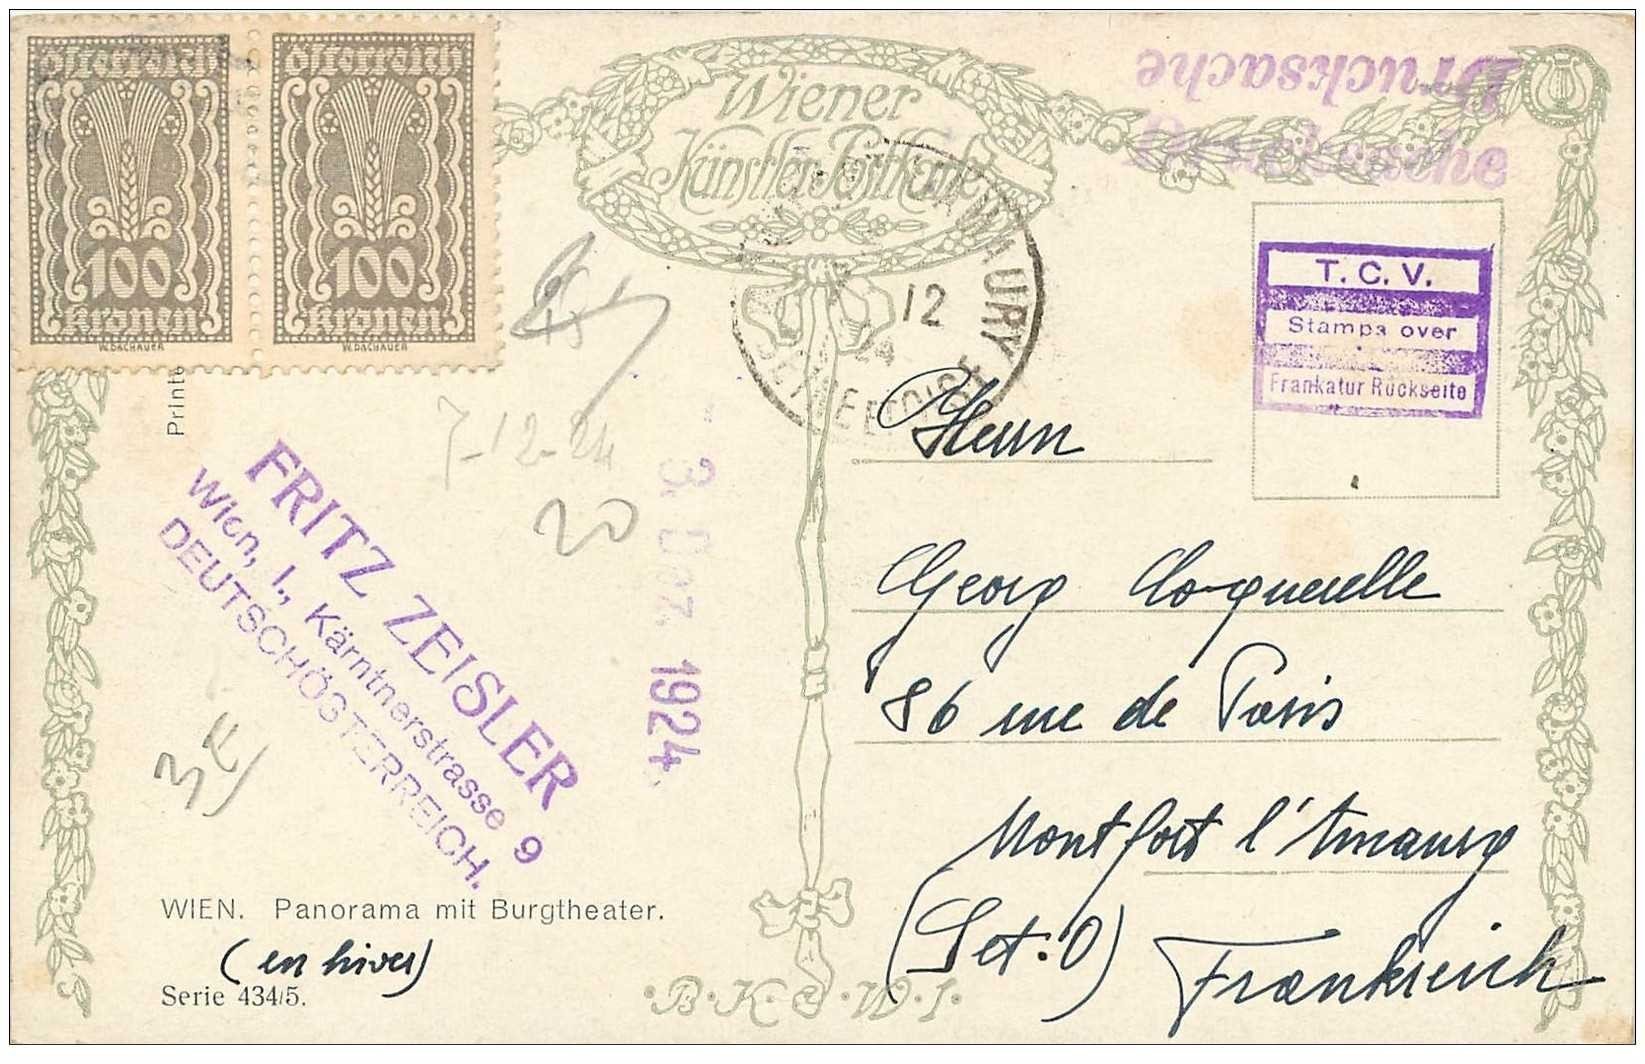 Österreich
100
Kronen
W. DACHAUER
Österreich
100
Kronen
W. DACHAUER
Wiener
Künstler-Postkarte
Drucksache
Drucksache
T. C. V.
Stamps over
Frankatur Rückseite
12
24
SEINE ET OISE
Printe
7-12-24
20
3. Dez. 1924
FRITZ ZEISLER
Wien, I., Kärntnerstrasse 9
DEUTSCHÖSTERREICH.
Herrn
Georg Cloquerelle
86 rue de Paris
Montfort l'Amaury
(Set. O)
Frankreich
WIEN. Panorama mit Burgtheater.
(en hiver)
Serie 434/5.
·B·K·W·I·